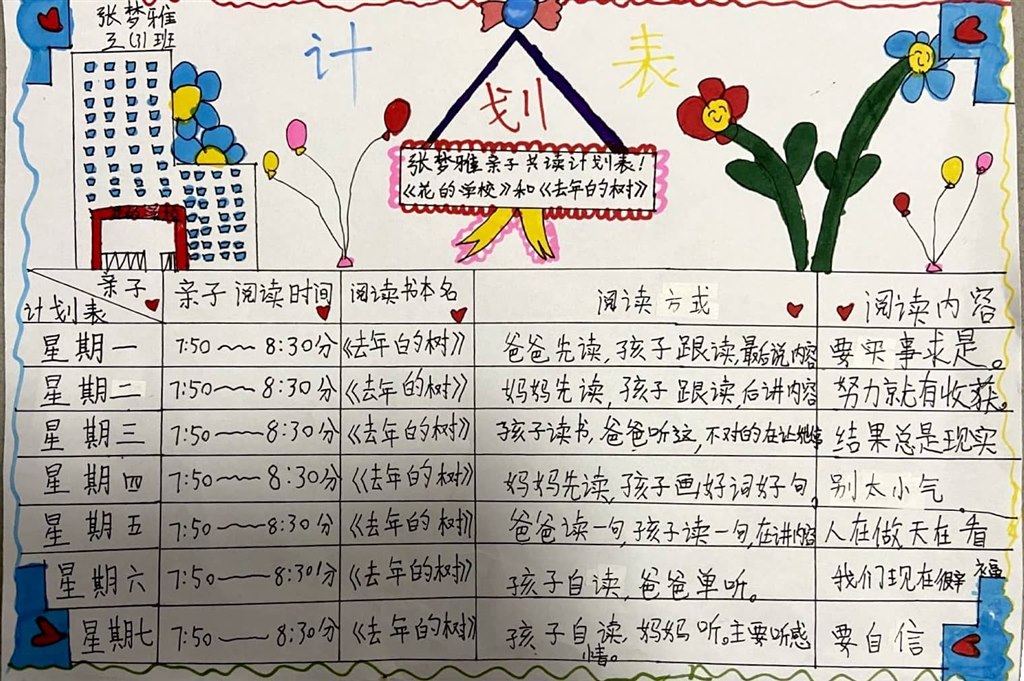 张梦雅
三(3)班
计划表
张梦雅亲子共读计划表!
《花的学校》和《去年的树》
亲子
计划表
亲子阅读时间
阅读书本名
阅读方式
阅读内容
星期一 7:50——8:30分 《去年的树》 爸爸先读,孩子跟读,最后说内容 要实事求是。
星期二 7:50——8:30分 《去年的树》 妈妈先读,孩子跟读,后讲内容 努力就有收获。
星期三 7:50——8:30分 《去年的树》 孩子读书,爸爸听,不对的在让他 结果总是现实
星期四 7:50——8:30分 《去年的树》 妈妈先读,孩子画好词好句, 别太小气
星期五 7:50——8:30分 《去年的树》 爸爸读一句,孩子读一句,在讲内容 人在做天在看
星期六 7:50——8:30分 《去年的树》 孩子自读,爸爸单听。 我们现在很幸福
星期七 7:50——8:30分 《去年的树》 孩子自读,妈妈听。主要听感情。 要自信